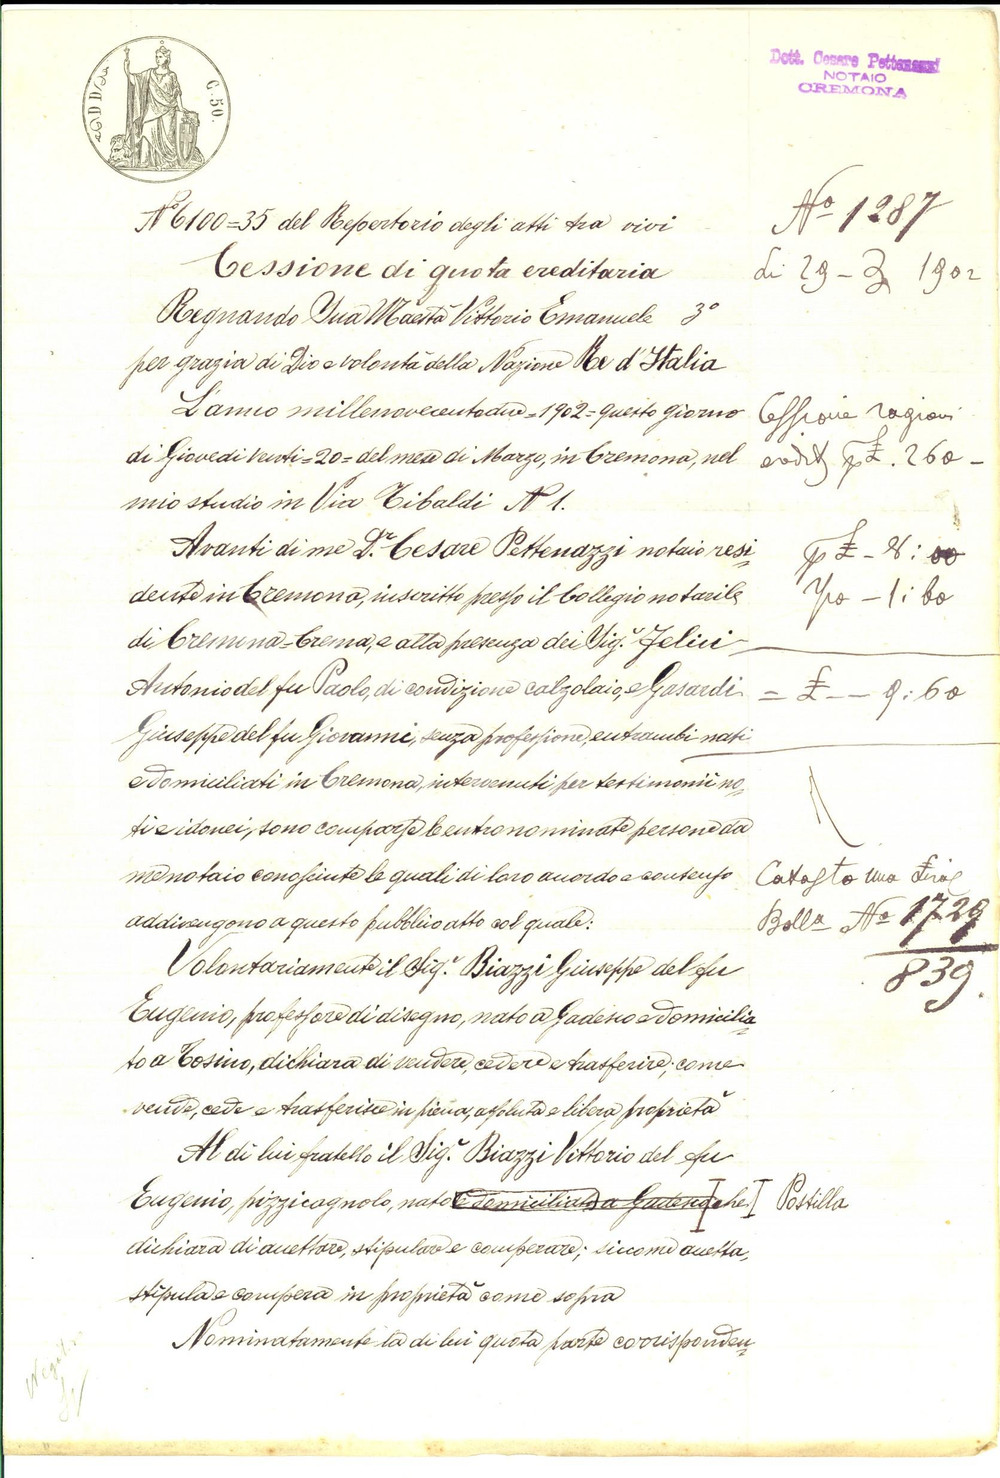 C. 50.
Dott. Cesare Pettenazzi
NOTAIO
CREMONA
N° 6100=35 del Repertorio degli atti tra vivi
Cessione di quota ereditaria
Regnando Sua Maestà Vittorio Emanuele 3°
per grazia di Dio e volontà della Nazione Re d'Italia
L'anno millenovecentodue=1902=questo giorno
di Giovedi venti=20=del mese di Marzo, in Cremona, nel
mio studio in Via Tibaldi N° 1.
Avanti di me D.r Cesare Pettenazzi notaio resi-
dente in Cremona, inscritto presso il Collegio notarile
di Cremona=Crema, e alla presenza dei Sig.r Felici
Antonio del fu Paolo, di condizione calzolaio, e Gasardi
Giuseppe del fu Giovanni, senza professione, entrambi nati
e domiciliati in Cremona, intervenuti per testimonii no-
ti e idonei, sono comparse le entronominate persone da
me notaio conosciute le quali di loro accordo e consenso
addivengono a questo pubblico atto col quale:
Volontariamente il Sig.r Biazzi Giuseppe del fu
Eugenio, professore di disegno, nato a Gadesco e domicilia-
to a Tosino, dichiara di vendere, cedere e trasferire; come
vende, cede e trasferisce in piena, assoluta e libera proprietà
Al di lui fratello il Sig.r Biazzi Vittorio del fu
Eugenio, pizzicagnolo, nato e domiciliato a Gadesco che
dichiara di accettare, stipulare e comperare; siccome accetta,
stipula e compera in proprietà come sopra
Nominatamente la di lui quota parte corrisponden-
N° 1287
li 29-3 1902
Cessione ragioni
p £. 260 -
p £ - 8:00
- 1:60
= £ - - 9:60
Catasto una
Bolla N° 1729
839.
Postilla